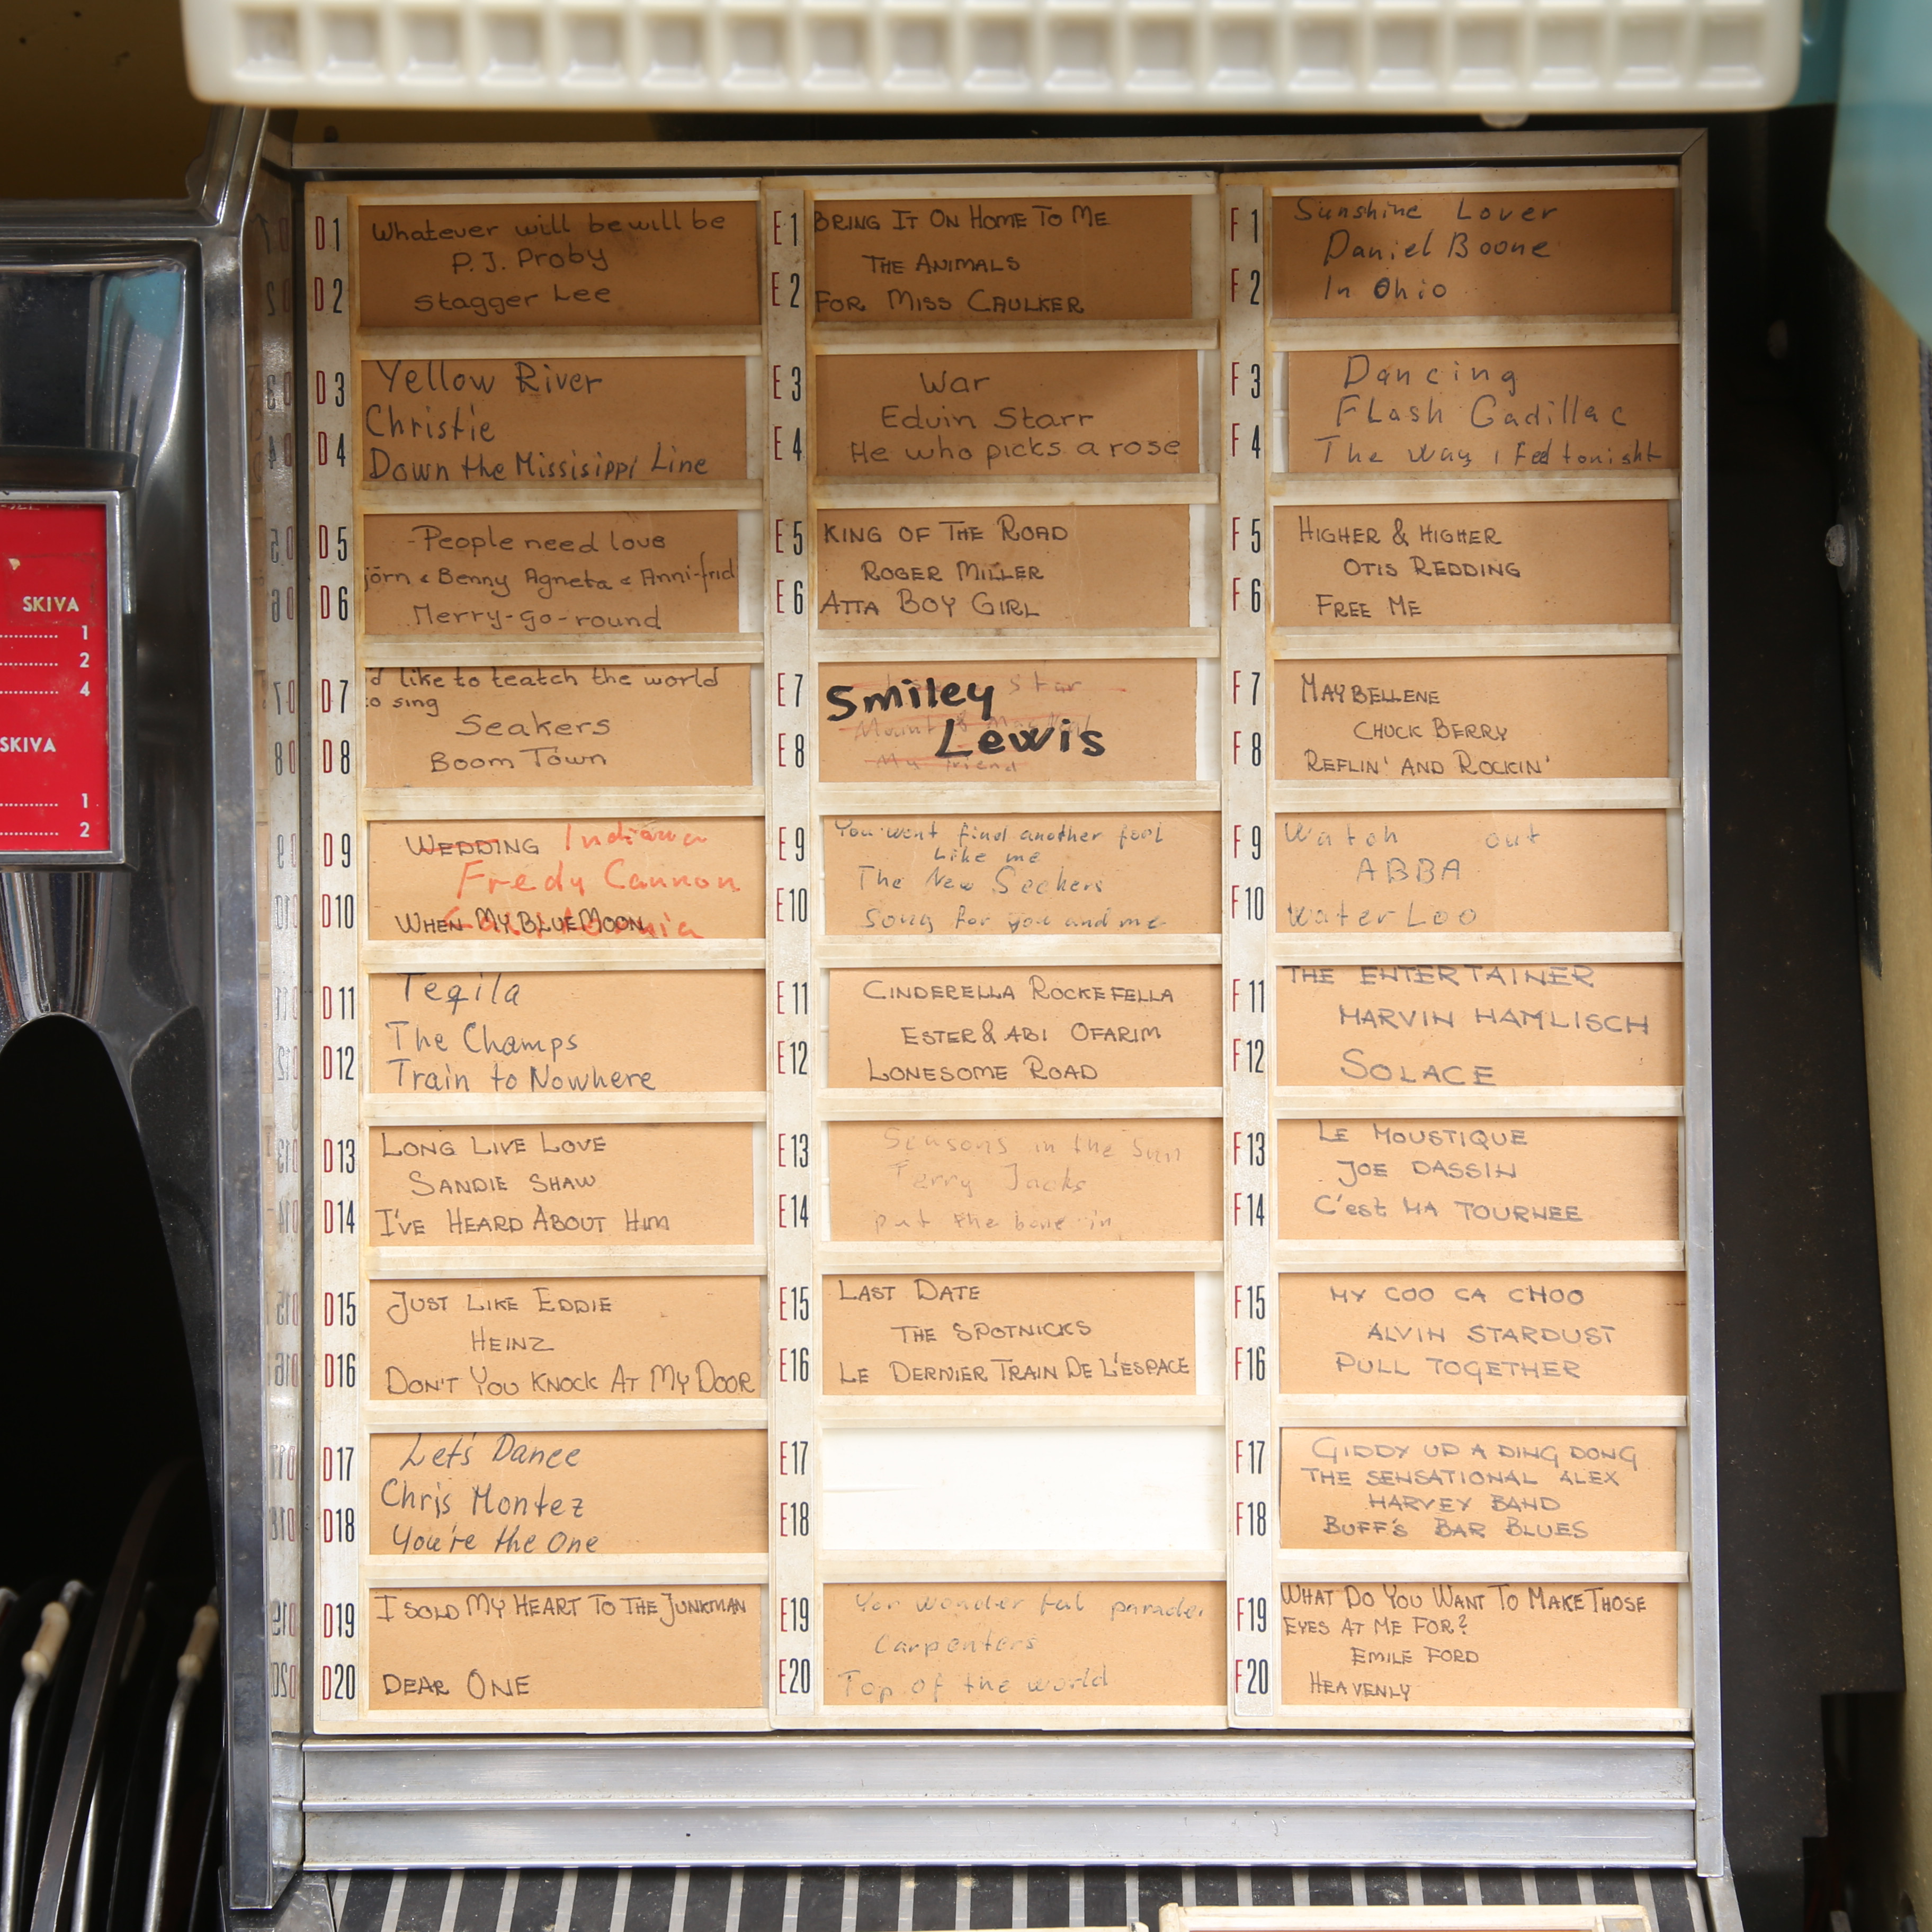 SKIVA
1
2
4
SKIVA
1
2
D1
D2
Whatever will be will be
P.J. Proby
Stagger Lee
D3
D4
Yellow River
Christie
Down the Missisippi Line
D5
D6
-People need love
jörn & Benny Agneta & Anni-frid
Merry-go-round
D7
D8
'd like to teatch the world
to sing
Seakers
Boom Town
D9
D10
WEDDING Indiana
Fredy Cannon
WHEN MY BLUE MOON
D11
D12
Teqila
The Champs
Train to Nowhere
D13
D14
LONG LIVE LOVE
SANDIE SHAW
I'VE HEARD ABOUT HIM
D15
D16
JUST LIKE EDDIE
HEINZ
DON'T YOU KNOCK AT MY DOOR
D17
D18
Let's Dance
Chris Montez
You're the One
D19
D20
I SOLD MY HEART TO THE JUNKMAN
DEAR ONE
E1
E2
BRING IT ON HOME TO ME
THE ANIMALS
FOR MISS CAULKER
E3
E4
War
Edvin Starr
He who picks a rose
E5
E6
KING OF THE ROAD
ROGER MILLER
ATTA BOY GIRL
E7
E8
star
Smiley
Lewis
My friend
E9
E10
You wont find another fool
Like me
The New Seekers
Song for you and me
E11
E12
CINDERELLA ROCKEFELLA
ESTER & ABI OFARIM
LONESOME ROAD
E13
E14
Seasons in the Sun
Terry Jacks
put the bone in
E15
E16
LAST DATE
THE SPOTNICKS
LE DERNIER TRAIN DE L'ESPACE
E17
E18
E19
E20
Yor wonder ful parade
Carpenters
Top of the world
F1
F2
Sunshine Lover
Daniel Boone
In Ohio
F3
F4
Dancing
FLash Cadillac
The way I feel tonight
F5
F6
HIGHER & HIGHER
OTIS REDDING
FREE ME
F7
F8
MAYBELLENE
CHUCK BERRY
REFLIN' AND ROCKIN'
F9
F10
Watch out
ABBA
WaterLoo
F11
F12
THE ENTERTAINER
MARVIN HAMLISCH
SOLACE
F13
F14
LE MOUSTIQUE
JOE DASSIN
C'est MA TOURNEE
F15
F16
MY COO CA CHOO
ALVIN STARDUST
PULL TOGETHER
F17
F18
GIDDY UP A DING DONG
THE SENSATIONAL ALEX
HARVEY BAND
BUFF'S BAR BLUES
F19
F20
WHAT DO YOU WANT TO MAKE THOSE
EYES AT ME FOR?
EMILE FORD
HEAVENLY